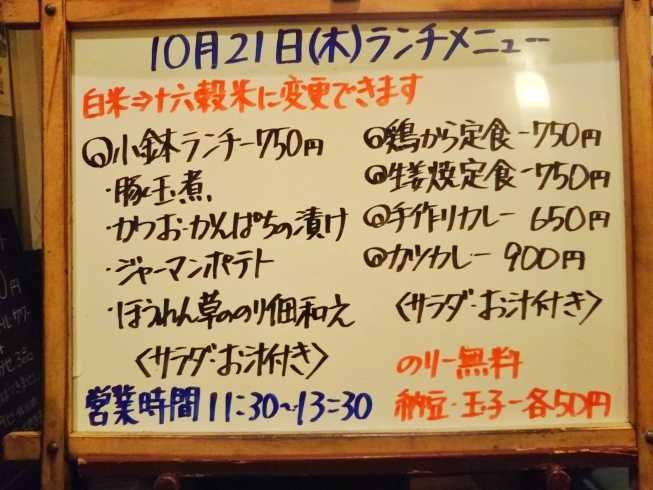 10月21日(木)ランチメニュー
白米⇒十六穀米に変更できます
◎小鉢ランチー750円
・豚玉煮
・かつお・かんぱちの漬け
・ジャーマンポテト
・ほうれん草ののり佃和え
〈サラダ・お汁付き〉
営業時間11:30~13:30
◎鶏から定食ー750円
◎生姜焼定食ー750円
◎手作りカレー 650円
◎カツカレー 900円
〈サラダ・お汁付き〉
のりー無料
納豆・玉子ー各50円